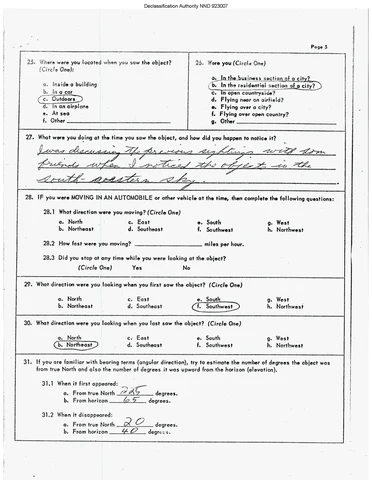 Declassification Authority NND 923007
Page 5
25. Where were you located when you saw the object?
(Circle One):
a. Inside a building
b. In a car
c. Outdoors
d. In an airplane
e. At sea
f. Other
26. Were you (Circle One)
a. In the business section of a city?
b. In the residential section of a city?
c. In open countryside?
d. Flying near an airfield?
e. Flying over a city?
f. Flying over open country?
g. Other
27. What were you doing at the time you saw the object, and how did you happen to notice it?
I was discussing the previous sighting with som
friends when I noticed the object in the
south eastern sky.
28. IF you were MOVING IN AN AUTOMOBILE or other vehicle at the time, then complete the following questions:
28.1 What direction were you moving? (Circle One)
a. North c. East e. South g. West
b. Northeast d. Southeast f. Southwest h. Northwest
28.2 How fast were you moving? miles per hour.
28.3 Did you stop at any time while you were looking at the object?
(Circle One) Yes No
29. What direction were you looking when you first saw the object? (Circle One)
a. North c. East e. South g. West
b. Northeast d. Southeast f. Southwest h. Northwest
30. What direction were you looking when you last saw the object? (Circle One)
a. North c. East e. South g. West
b. Northeast d. Southeast f. Southwest h. Northwest
31. If you are familiar with bearing terms (angular direction), try to estimate the number of degrees the object was
from true North and also the number of degrees it was upward from the horizon (elevation).
31.1 When it first appeared:
a. From true North 225 degrees.
b. From horizon 65 degrees.
31.2 When it disappeared:
a. From true North 20 degrees.
b. From horizon 40 degrees.